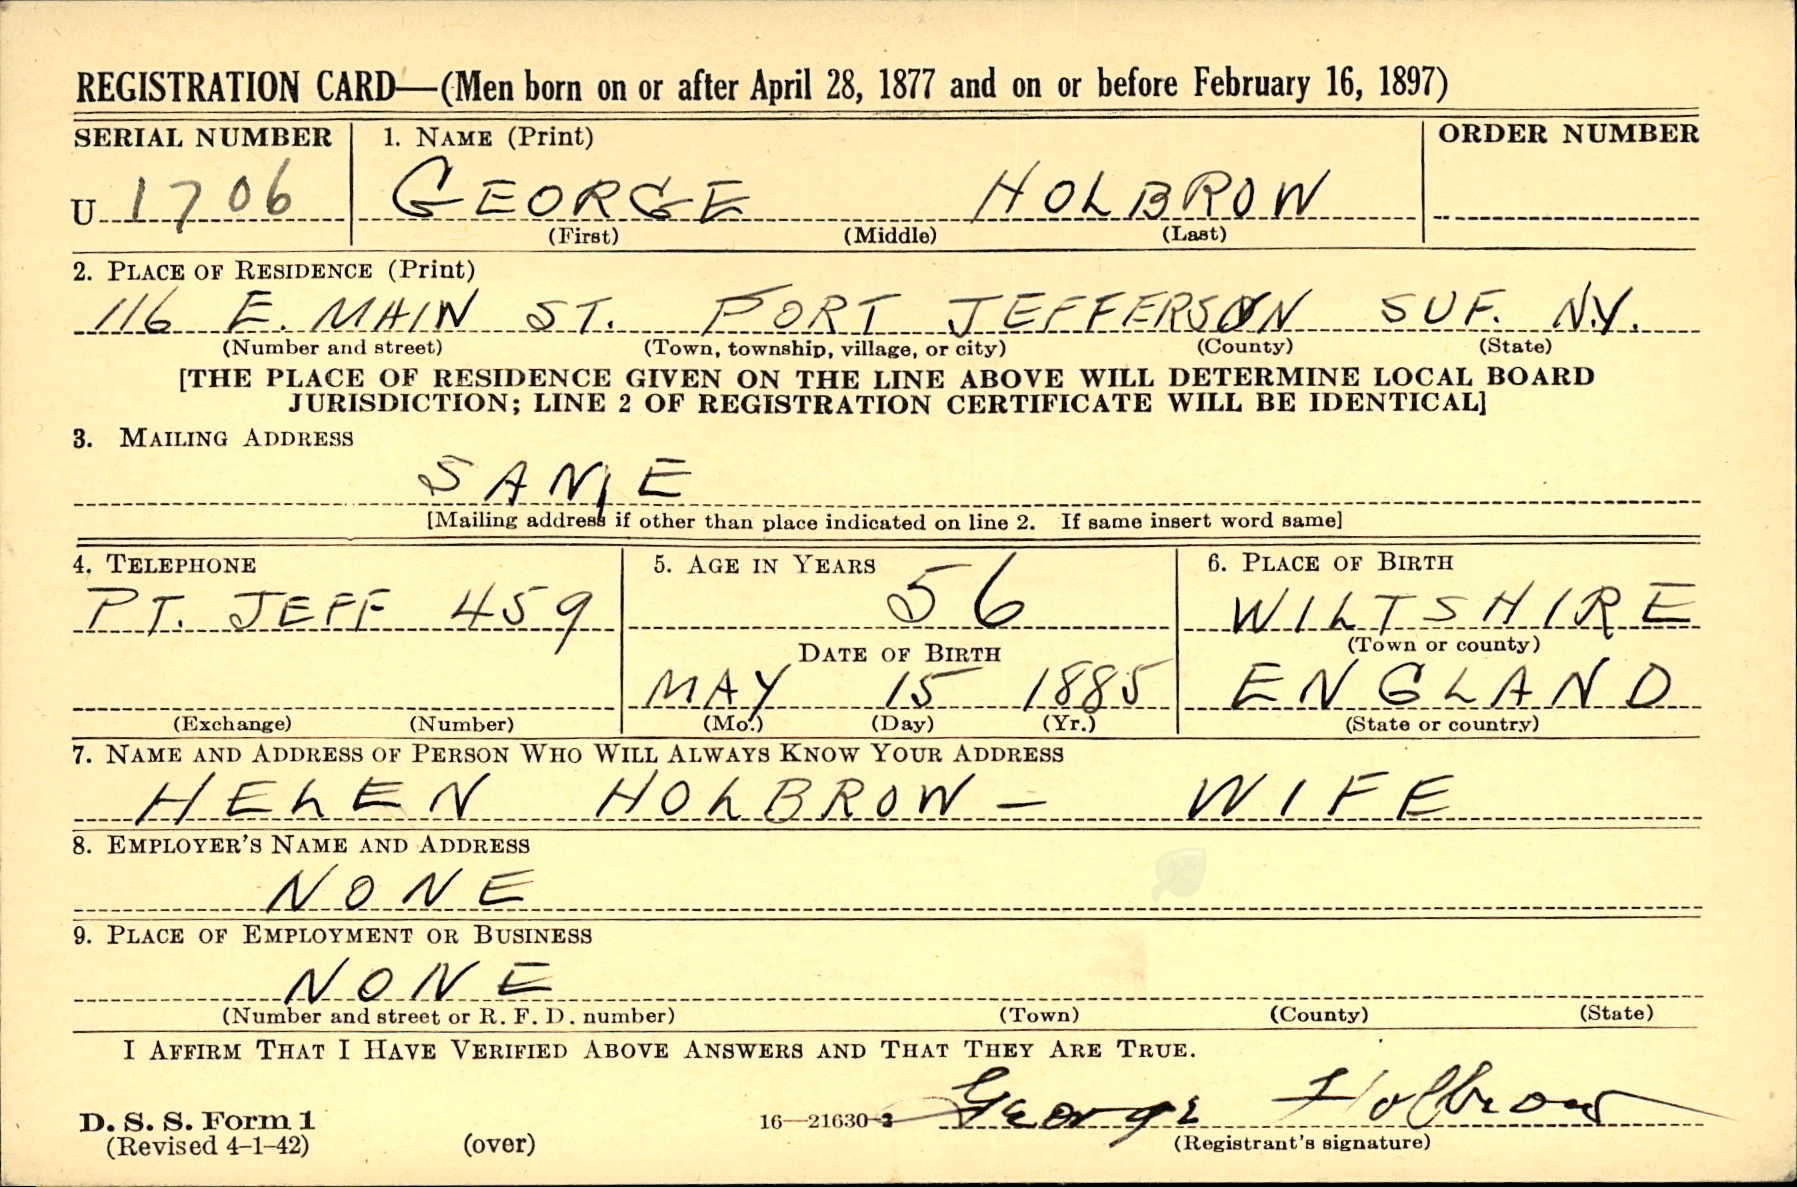 REGISTRATION CARD—(Men born on or after April 28, 1877 and on or before February 16, 1897)
SERIAL NUMBER 1. NAME (Print) ORDER NUMBER
U 1706 GEORGE HOLBROW
(First) (Middle) (Last)
2. PLACE OF RESIDENCE (Print)
116 E. MAIN ST. PORT JEFFERSON SUF. N.Y.
(Number and street) (Town, township, village, or city) (County) (State)
[THE PLACE OF RESIDENCE GIVEN ON THE LINE ABOVE WILL DETERMINE LOCAL BOARD
JURISDICTION; LINE 2 OF REGISTRATION CERTIFICATE WILL BE IDENTICAL]
3. MAILING ADDRESS
SAME
[Mailing address if other than place indicated on line 2. If same insert word same]
4. TELEPHONE 5. AGE IN YEARS 6. PLACE OF BIRTH
PT. JEFF 459 56 WILTSHIRE
(Town or county)
DATE OF BIRTH
MAY 15 1885 ENGLAND
(Exchange) (Number) (Mo.) (Day) (Yr.) (State or country)
7. NAME AND ADDRESS OF PERSON WHO WILL ALWAYS KNOW YOUR ADDRESS
HELEN HOLBROW — WIFE
8. EMPLOYER'S NAME AND ADDRESS
NONE
9. PLACE OF EMPLOYMENT OR BUSINESS
NONE
(Number and street or R. F. D. number) (Town) (County) (State)
I AFFIRM THAT I HAVE VERIFIED ABOVE ANSWERS AND THAT THEY ARE TRUE.
George Holbrow
D. S. S. Form 1 16—21630-2
(Revised 4-1-42) (over) (Registrant's signature)